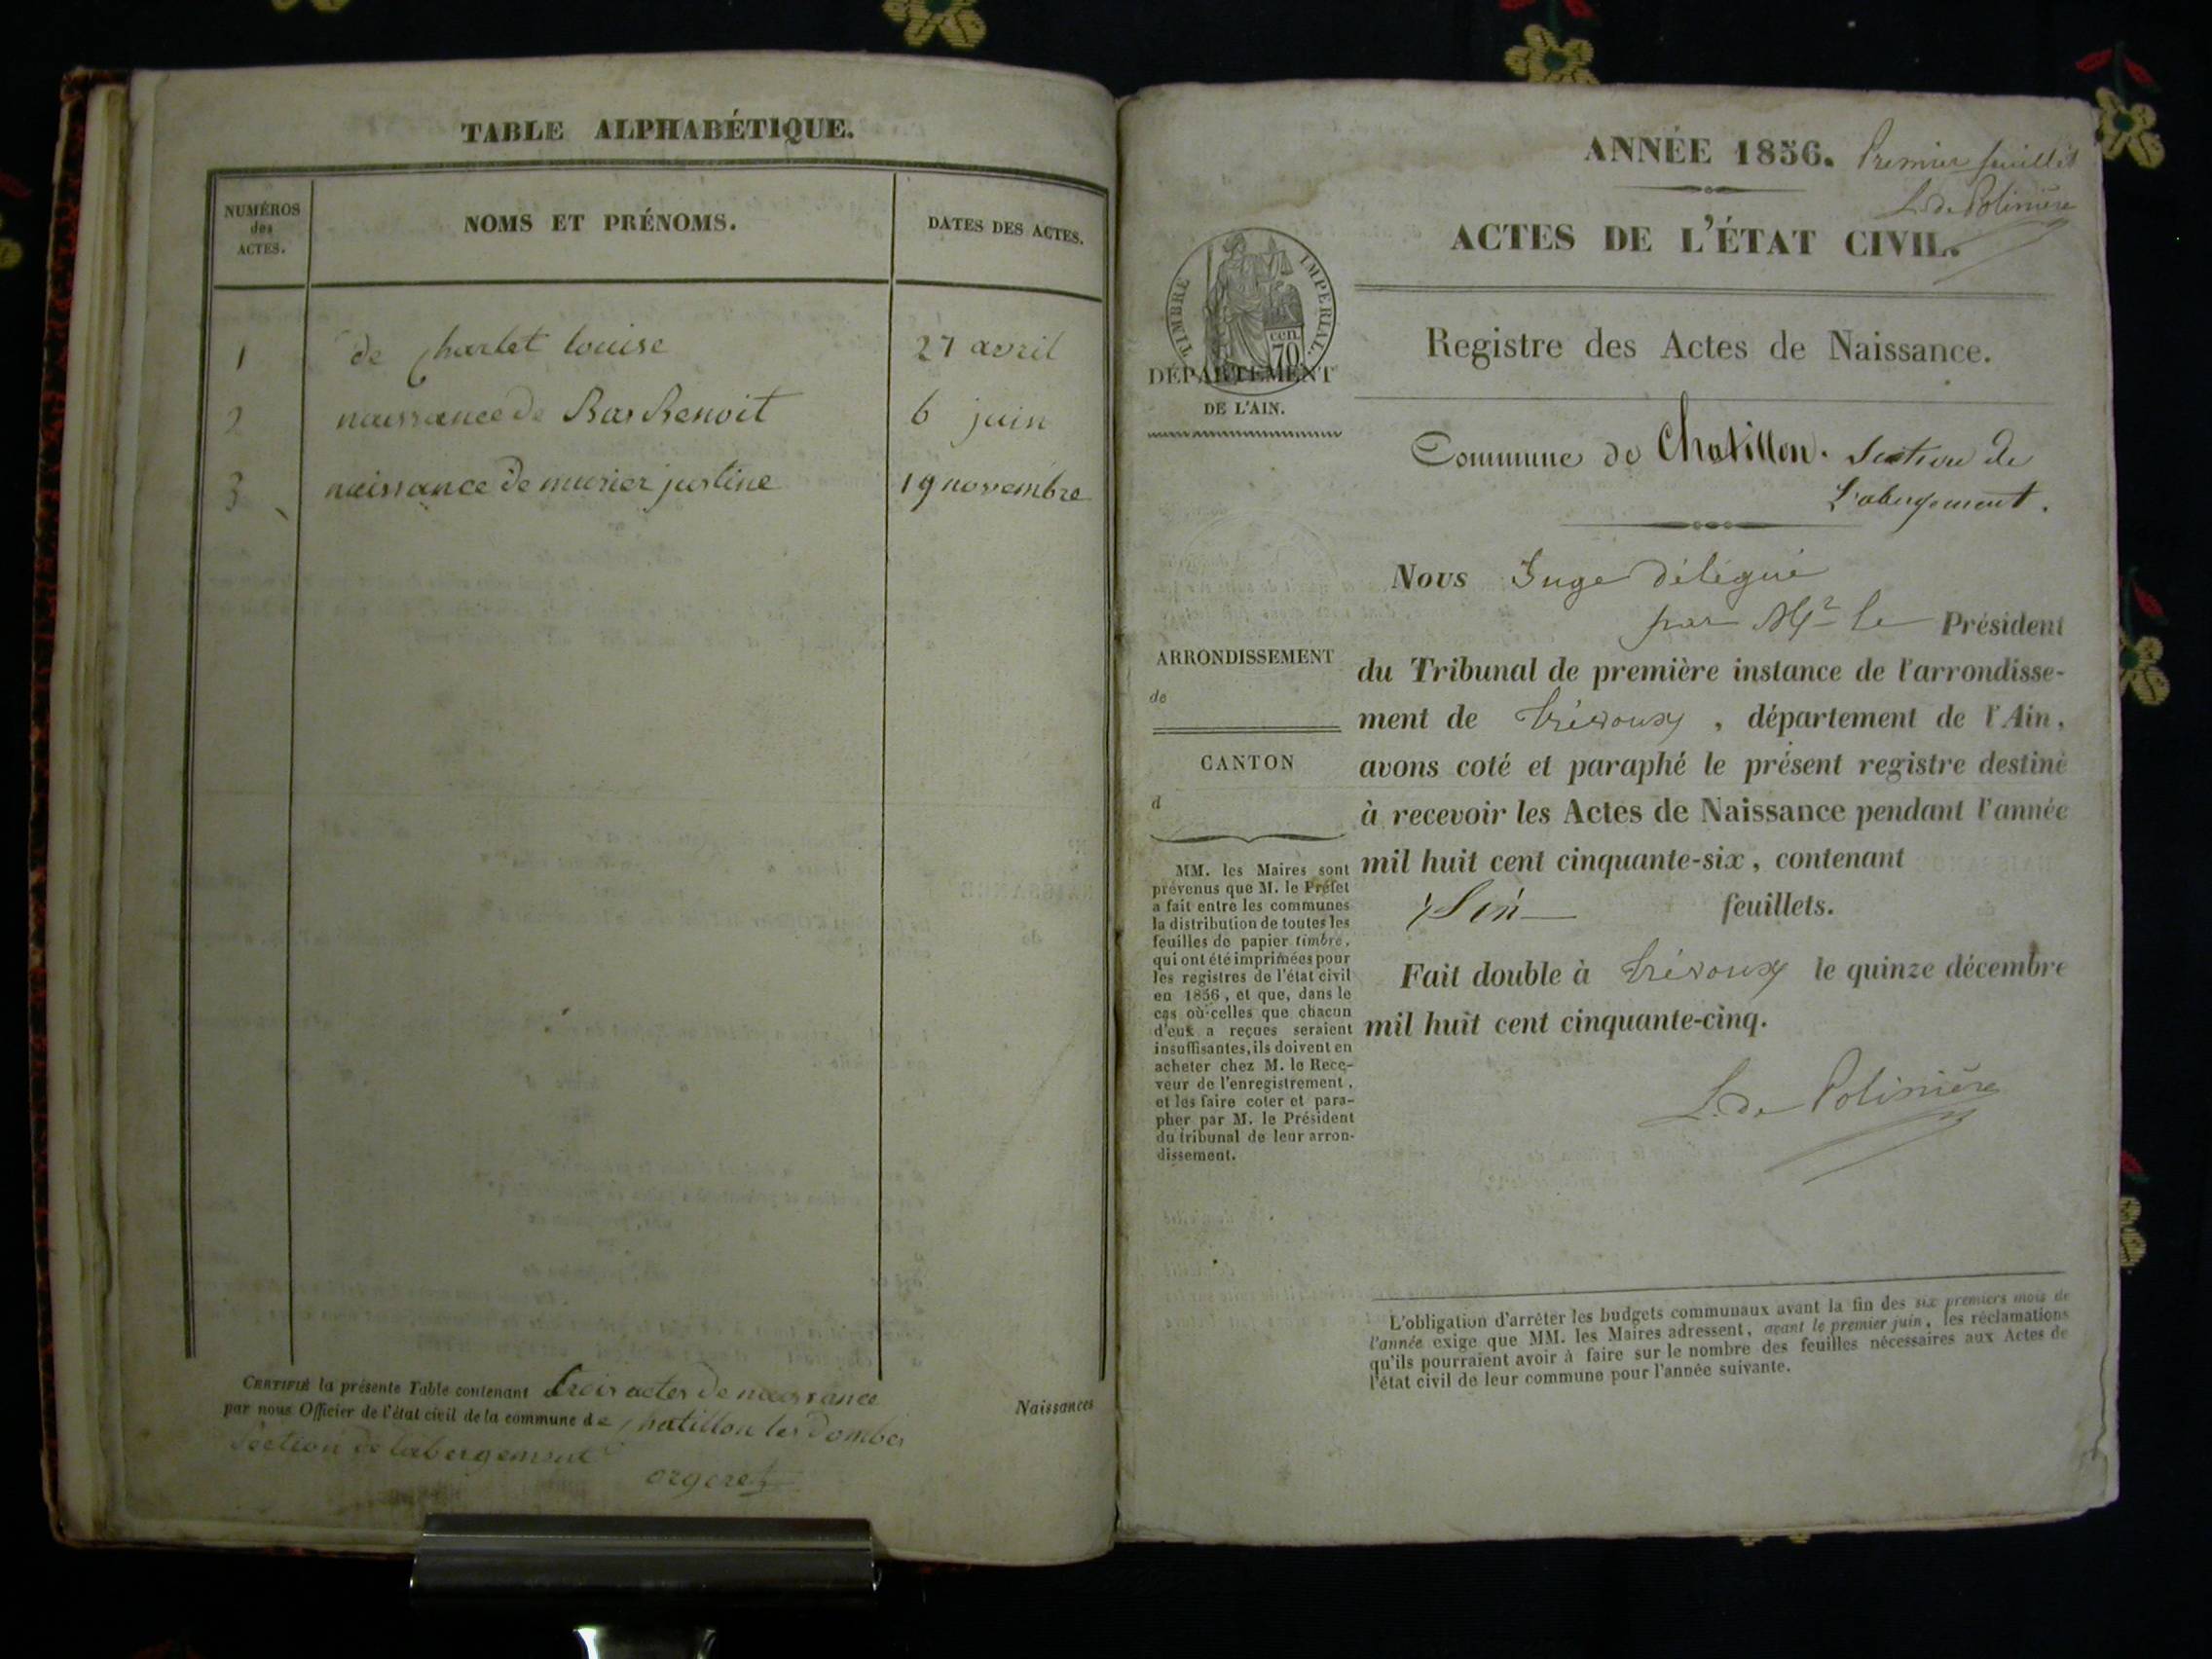 TABLE ALPHABÉTIQUE.
NUMÉROS
des
ACTES.
NOMS ET PRÉNOMS.
DATES DES ACTES.
1 de Charlet louise 27 avril
2 naissance de Bas Benoit 6 juin
3 naissance de murier justine 19 novembre
CERTIFIÉ la présente Table contenant trois actes de naissance
par nous Officier de l'état civil de la commune de Chatillon les Dombes
Section de labergement
orgeret
Naissances
ANNÉE 1856. Premier feuillet
L. de Polinière
ACTES DE L'ÉTAT CIVIL.
TIMBRE IMPERIAL.
cen.
70
DÉPARTEMENT
DE L'AIN.
Registre des Actes de Naissance.
Commune de Chatillon. Section de
L'abergement.
Nous Juge délégué
par Mr le Président
du Tribunal de première instance de l'arrondisse-
ment de Trévoux, département de l'Ain,
avons coté et paraphé le présent registre destiné
à recevoir les Actes de Naissance pendant l'année
mil huit cent cinquante-six, contenant
feuillets.
Fait double à Trévoux le quinze décembre
mil huit cent cinquante-cinq.
L. de Polinière
ARRONDISSEMENT
de
CANTON
d
MM. les Maires sont
prévenus que M. le Préfet
a fait entre les communes
la distribution de toutes les
feuilles de papier timbré,
qui ont été imprimées pour
les registres de l'état civil
en 1856, et que, dans le
cas où celles que chacun
d'eux a reçues seraient
insuffisantes, ils doivent en
acheter chez M. le Rece-
veur de l'enregistrement,
et les faire coter et para-
pher par M. le Président
du tribunal de leur arron-
dissement.
L'obligation d'arrêter les budgets communaux avant la fin des six premiers mois de
l'année exige que MM. les Maires adressent, avant le premier juin, les réclamations
qu'ils pourraient avoir à faire sur le nombre des feuilles nécessaires aux Actes de
l'état civil de leur commune pour l'année suivante.